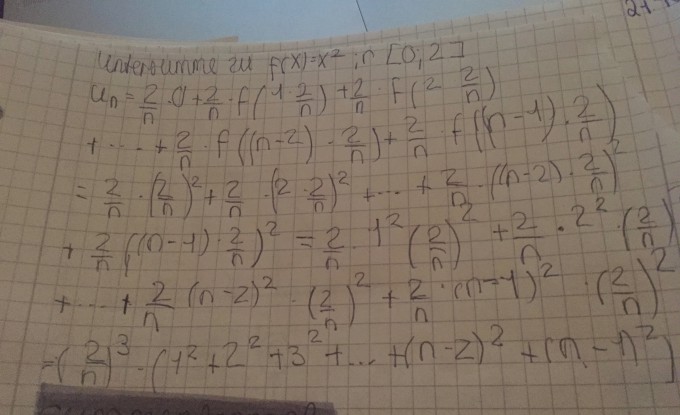 Untersumme zu f(x)=x²; n [0;2]
Un = 2/n · 0 + 2/n · f(1 · 2/n) + 2/n · f(2 2/n)
+ ... + 2/n · f((n-2) · 2/n) + 2/n · f((n-1) · 2/n)
= 2/n · (2/n)² + 2/n · (2 · 2/n)² + ... + 2/n · ((n-2) · 2/n)²
+ 2/n ((n-1) · 2/n)² = 2/n · 1² (2/n)² + 2/n · 2² · (2/n)
+ ... + 2/n (n-2)² · (2/n)² + 2/n · (n-1)² · (2/n)²
= (2/n)³ · (1² + 2² + 3² + ... + (n-2)² + (n-1²)